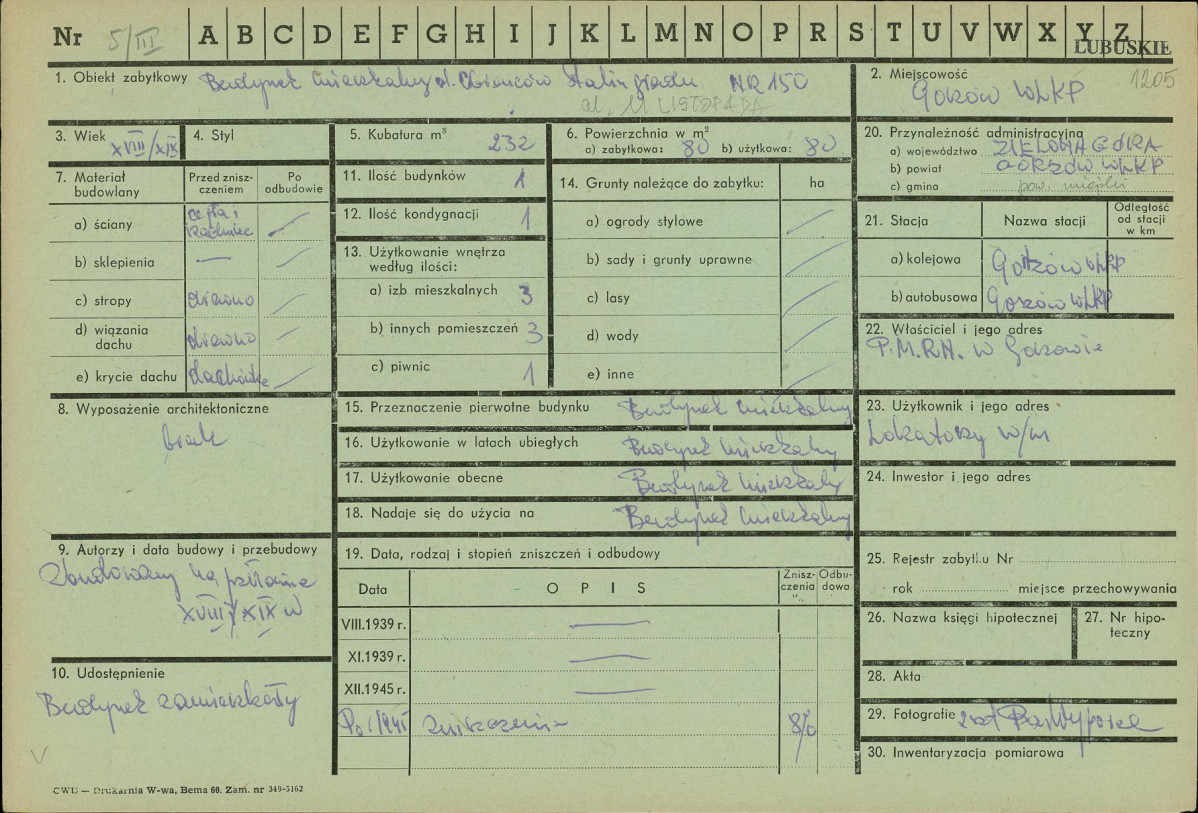 Nr 5/III A B C D E F G H I J K L M N O P R S T U V W X Y Z
LUBUSKIE
1205
1. Obiekt zabytkowy Budynek mieszkalny ul. Obrońców Stalingradu NR 150
al. 11 LISTOPADA
2. Miejscowość
Gorzów WLKP
3. Wiek XVIII/XIX
4. Styl
5. Kubatura m³ 232
6. Powierzchnia w m²
a) zabytkowa: 80 b) użytkowa: 80
20. Przynależność administracyjna
a) województwo ZIELONA GÓRA
b) powiat GORZÓW WLKP
c) gmina pow. miejski
7. Materiał budowlany
Przed znisz-
czeniem
Po
odbudowie
a) ściany cegła i kamień
b) sklepienia —
c) stropy drewno
d) wiązania
dachu drewno
e) krycie dachu dachówka
11. Ilość budynków 1
12. Ilość kondygnacji 1
13. Użytkowanie wnętrza
według ilości:
a) izb mieszkalnych 3
b) innych pomieszczeń 3
c) piwnic 1
14. Grunty należące do zabytku: ha
a) ogrody stylowe
b) sady i grunty uprawne
c) lasy
d) wody
e) inne
21. Stacja Nazwa stacji
Odległość
od stacji
w km
a) kolejowa Gorzów WLKP
b) autobusowa Gorzów WLKP
22. Właściciel i jego adres
P.M.R.N. w Gorzowie
8. Wyposażenie architektoniczne
brak
15. Przeznaczenie pierwotne budynku Budynek mieszkalny
16. Użytkowanie w latach ubiegłych Budynek mieszkalny
17. Użytkowanie obecne Budynek mieszkalny
18. Nadaje się do użycia na Budynek mieszkalny
23. Użytkownik i jego adres
Lokatorzy w/m
24. Inwestor i jego adres
9. Autorzy i data budowy i przebudowy
Zbudowany na przełomie
XVIII/XIX w
19. Data, rodzaj i stopień zniszczeń i odbudowy
Data O P I S
Znisz-
czenia
%
Odbu-
dowa
VIII.1939 r. —
XI.1939 r. —
XII.1945 r. —
Po 1945 zniszczenie 8%
25. Rejestr zabytku Nr
rok miejsce przechowywania
26. Nazwa księgi hipotecznej
27. Nr hipo-
teczny
10. Udostępnienie
Budynek zamieszkały
28. Akta
29. Fotografie
30. Inwentaryzacja pomiarowa
CWD — Drukarnia W-wa, Bema 60. Zam. nr 349-5162